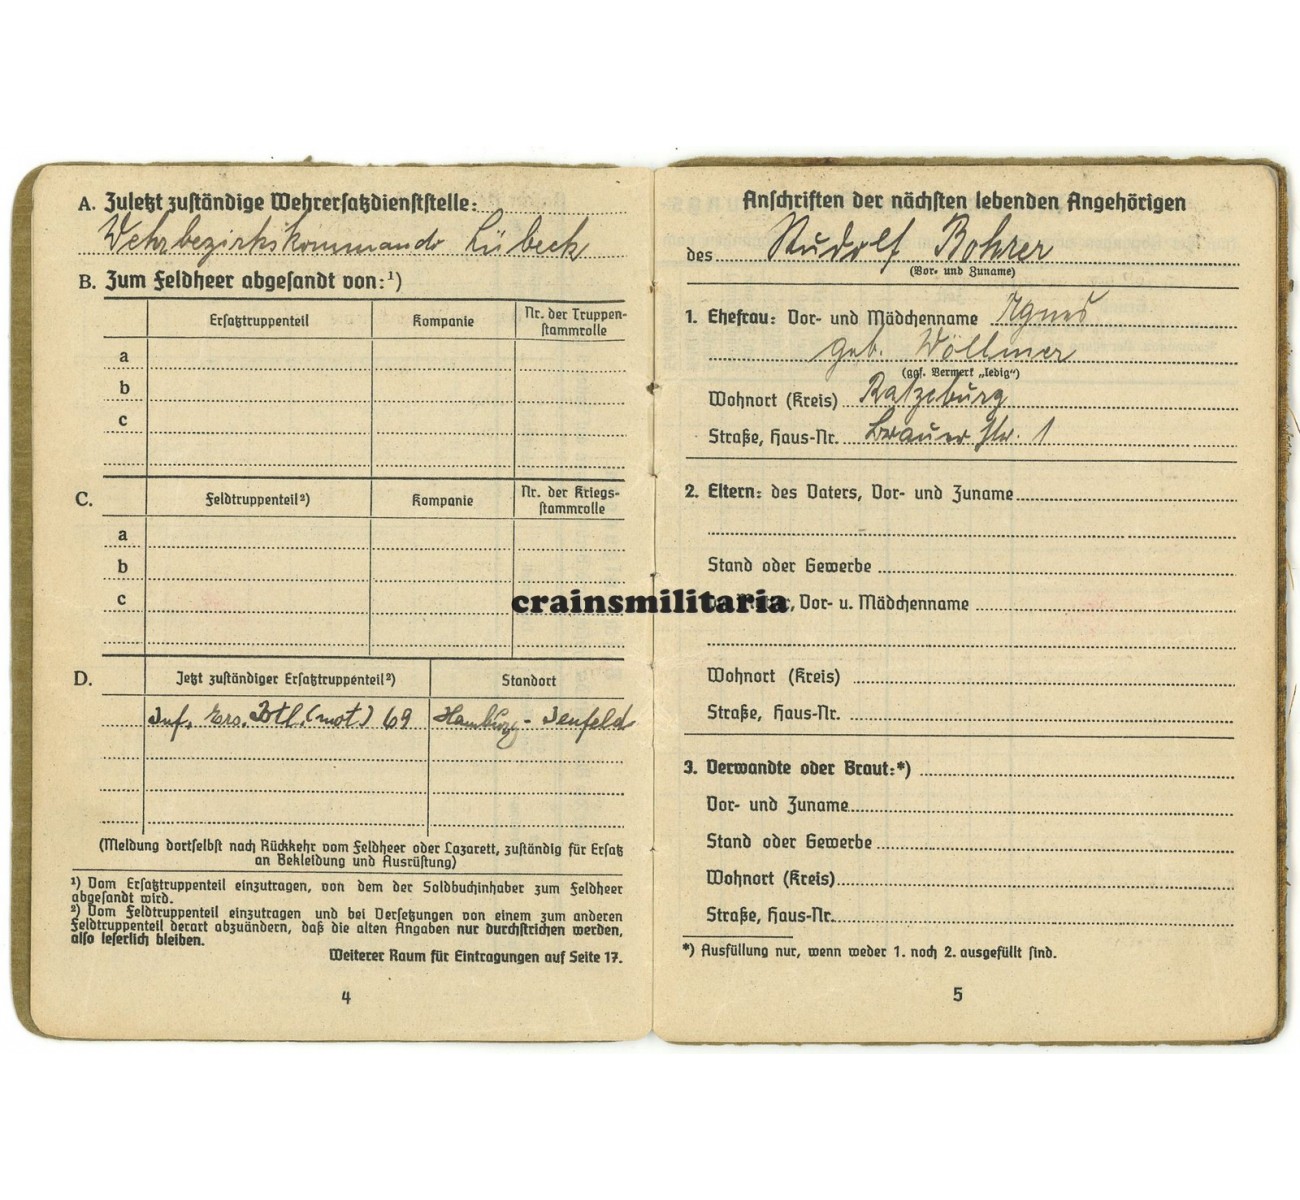 A. Zuletzt zuständige Wehrersatzdienststelle:
Wehrbezirkskommando Lübeck
B. Zum Feldheer abgesandt von:¹)
Ersatztruppenteil Kompanie Nr. der Truppen-
stammrolle
a
b
c
C. Feldtruppenteil²) Kompanie Nr. der Kriegs-
stammrolle
a
b
c
D. Jetzt zuständiger Ersatztruppenteil²) Standort
Inf. Ers. Btl. (mot) 69 Hamburg - Jenfeld
(Meldung dortselbst nach Rückkehr vom Feldheer oder Lazarett, zuständig für Ersatz
an Bekleidung und Ausrüstung)
¹) Vom Ersatztruppenteil einzutragen, von dem der Soldbuchinhaber zum Feldheer
abgesandt wird.
²) Vom Feldtruppenteil einzutragen und bei Versetzungen von einem zum anderen
Feldtruppenteil derart abzuändern, daß die alten Angaben nur durchstrichen werden,
also leserlich bleiben.
Weiterer Raum für Eintragungen auf Seite 17.
4
Anschriften der nächsten lebenden Angehörigen
des Rudolf Bohrer
(Vor- und Zuname)
1. Ehefrau: Vor- und Mädchenname Agnes
geb. Wöllmer
(ggf. Vermerk „ledig“)
Wohnort (Kreis) Ratzeburg
Straße, Haus-Nr. Brauer Str. 1
2. Eltern: des Vaters, Vor- und Zuname
Stand oder Gewerbe
crainsmilitaria
, Vor- u. Mädchenname
Wohnort (Kreis)
Straße, Haus-Nr.
3. Verwandte oder Braut:*)
Vor- und Zuname
Stand oder Gewerbe
Wohnort (Kreis)
Straße, Haus-Nr.
*) Ausfüllung nur, wenn weder 1. noch 2. ausgefüllt sind.
5